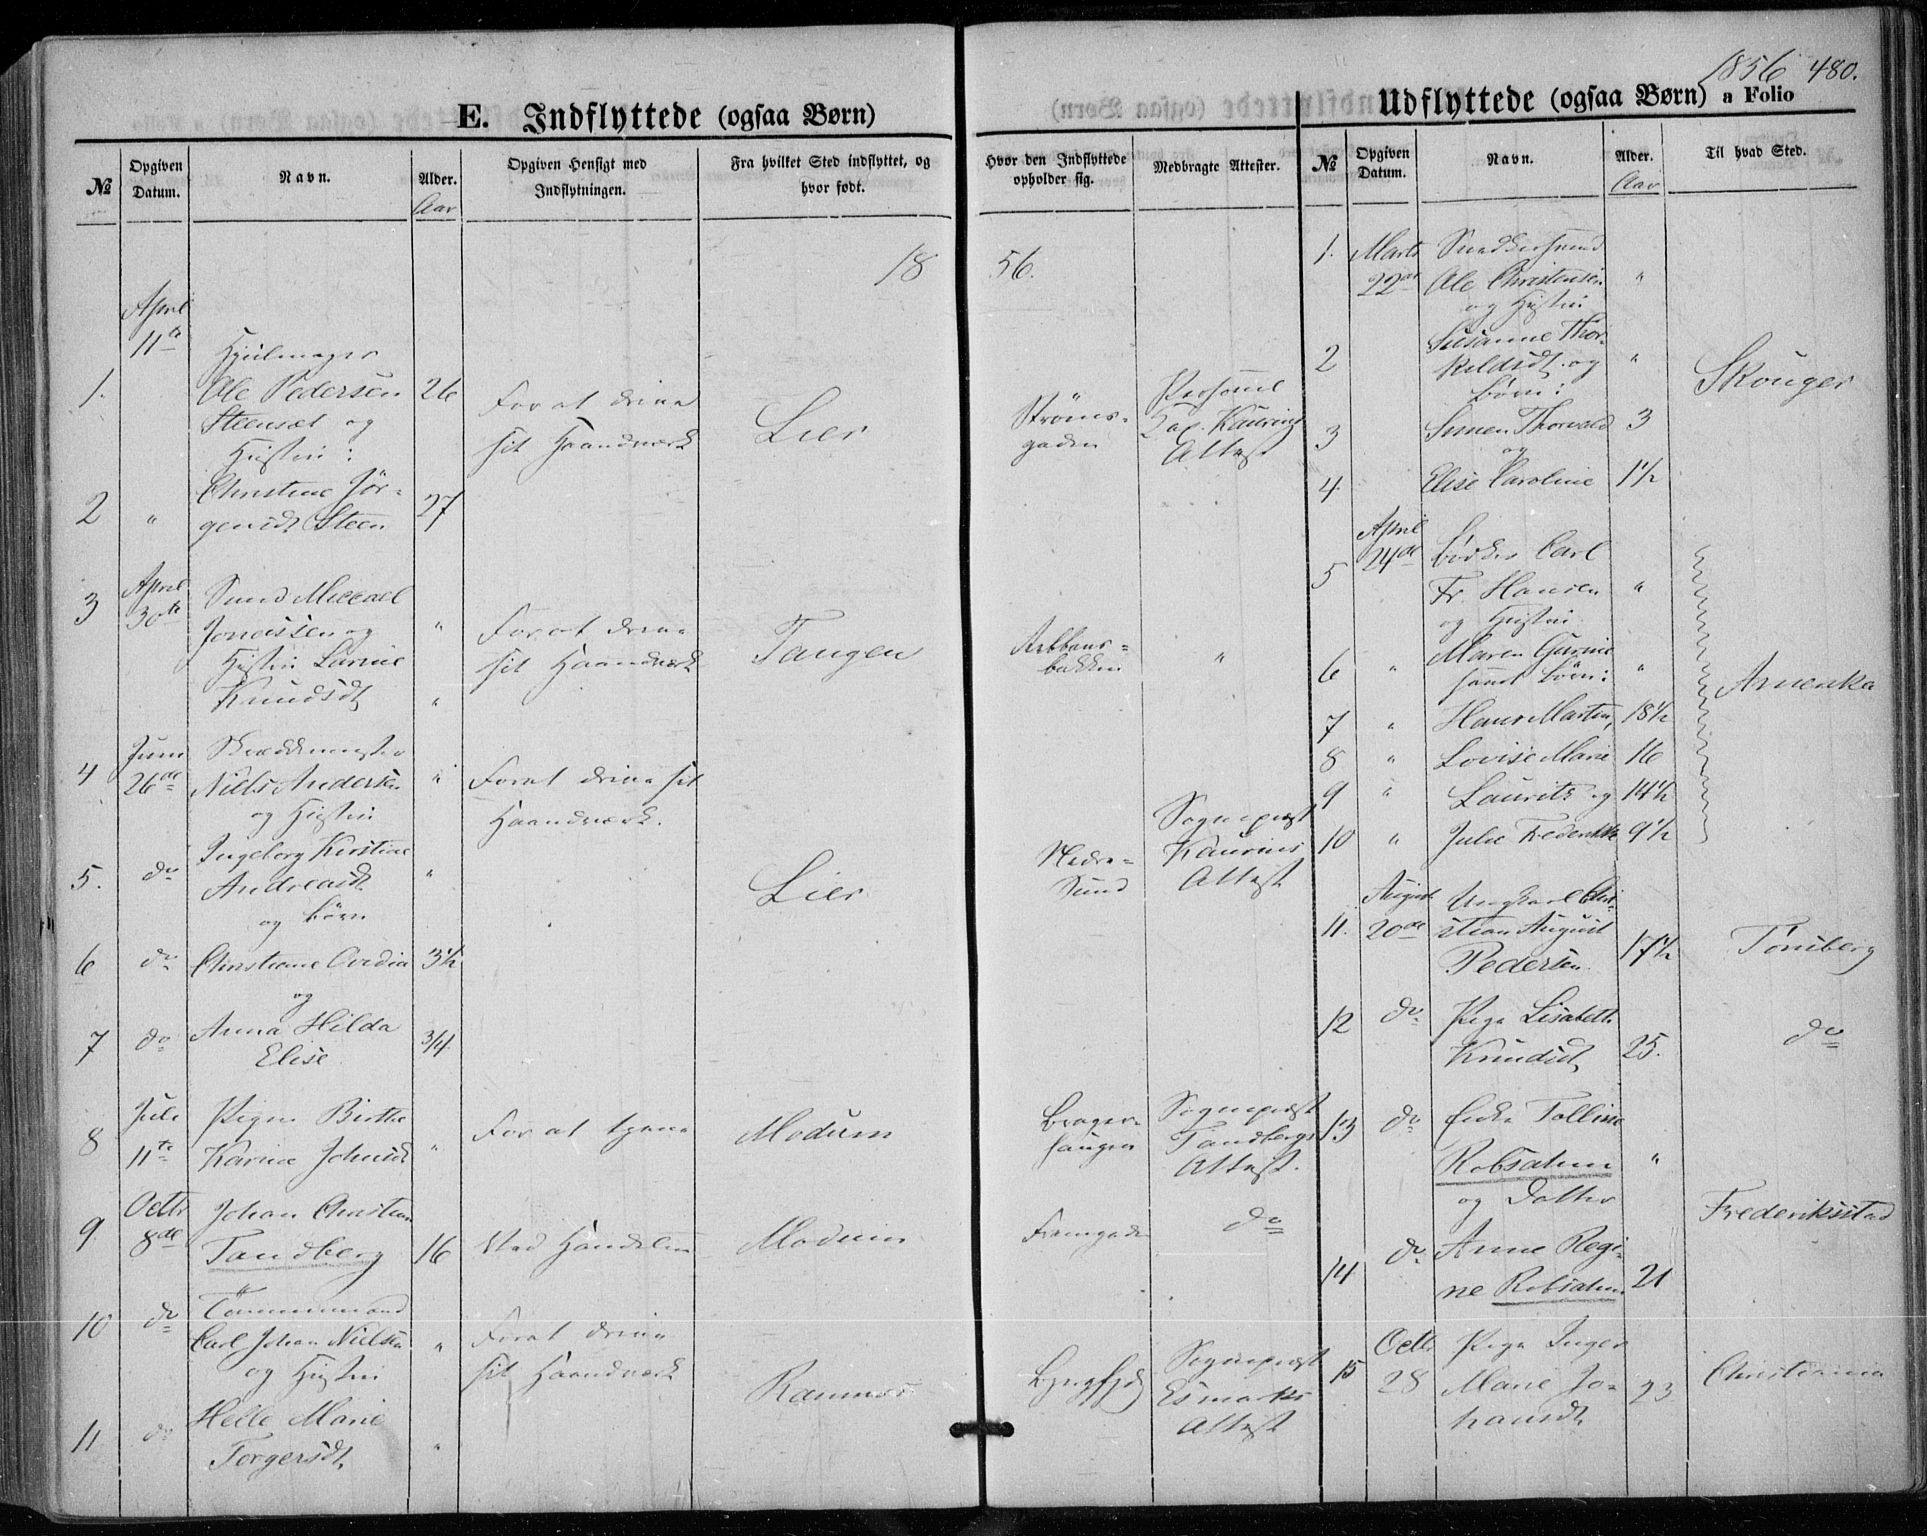 1856 480.
E. Indflyttede (ogsaa Børn)
№
Opgiven Datum.
Navn.
Alder.
Aar
Opgiven Hensigt med Indflytningen.
Fra hvilket Sted indflyttet, og hvor født.
Hvor den Indflyttede opholder sig.
Medbragte Attester.
1856.
April
11te
1.
Hjulmager
Ole Pedersen 26
Steensæt og
Hustru:
For at drive
sit Haandværk
Lier
Strøms-
gaden
Personel
Cap. Kaurins
Attest
2 "
Christine Jør-
gensdt Steen 27
April
3 30te
Smed Michael
Jonassen og "
Hustru Larine
Knudsdt "
For at drive
sit Haandværk
Tangen
bakken
"
Juni
4 26de
Niels Andersen "
og Hustru
For at drive sit
Haandværk.
5. do
Ingeborg Kirstine
Andreasdt "
og Børn
Lier
Nedre-
Sund
Sognepræst
Kaurins
Attest
6 do Christiane Ovidia 3½
og
7 do Anna Hilda
Elise 3/4
Juli
8 11te
Pigen Birthe
Karine Johnsdt "
For at tjene
Modum
Brager-
haugen
Sognepræst
Tandbergs
Attest.
Octbr
9. 8de
Johan Christian
Tandberg 16
Ved Handelen
Modum
do
10 do
Tømmermand
Carl Johan Nielsen "
og Hustru
For at drive
sit Haandværk
Sognepræst
Esmarks
Attest
11 do
Helle Marie
Torgersdt "
Udflyttede (ogsaa Børn) a Folio
№
Opgiven Datum.
Navn.
Alder.
Aar
Til hvad Sted.
1. Marts
22de
Snedkersvend
Ole Christensen "
og Hustru
2
Susanne Thor-
keldsdt. og "
Børn:
Skouger
3 Simen Thorvald 3
og
4. Elise Caroline 1½
April
5 24de
Bødker Carl
Fr. Hansen "
og Hustru
6 "
Maren Gurine
samt Børn: "
Amerika
7 " Hans Martin, 18½
8 " Lovise Marie 16
9 " Laurits og 14½
10 " Julie Frederikke 9½
August
11. 20de
Ungkarl Chri-
stian August
Pedersen 17½
Tønsberg
12 do
Pige Lisabeth
Knudsdt 25.
do
13 do
Enke Talline
Robsahm "
og Datter
Frederiksstad
14 do
Anne Regi-
ne Robsahm 21
Octbr
15 28
Pige Inger
Marie Jo-
hansdt 23
Christiania